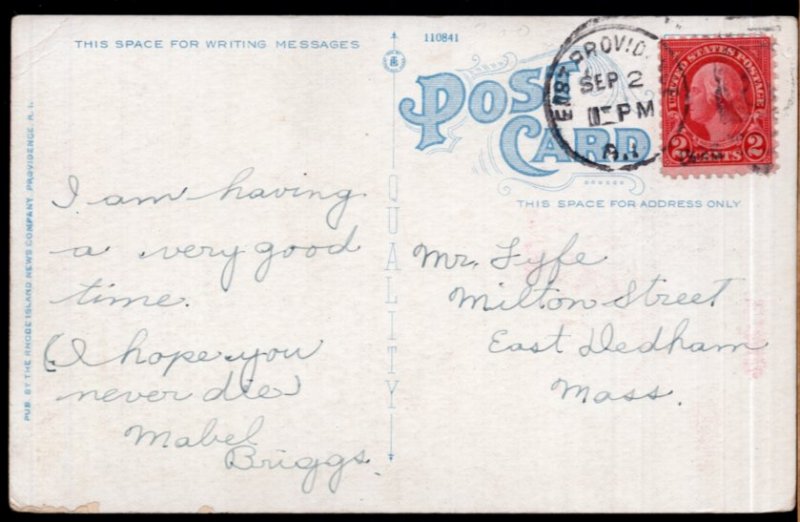 THIS SPACE FOR WRITING MESSAGES
110841
POST CARD
THIS SPACE FOR ADDRESS ONLY
EAST PROVID.
SEP 2
PM
R.I.
UNITED STATES POSTAGE
2 CENTS 2
PUB. BY THE RHODE ISLAND NEWS COMPANY, PROVIDENCE, R. I.
QUALITY
I am having
a very good
time.
(I hope you
never die)
Mabel
Briggs.
Mr. Fyfe
Milton Street
East Dedham
Mass.